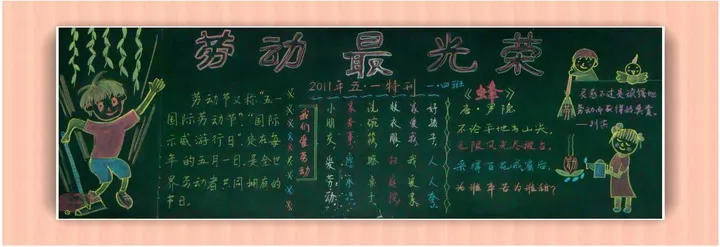 劳动最光荣
2011年五·一特刊 一.四班
劳动节又称“五一
国际劳动节”“国际
示威游行日”，定在每
年的五月一日，是全世
界劳动者共同拥有的
节日。
我们爱劳动
小朋友，爱劳动，
家务事，
洗碗筷，擦桌子，
收衣服，扫庭院
家爱我，我爱家
好孩子，人人夸
《蜂》
唐·罗隐
不论平地与山尖，
无限风光尽被占。
采得百花成蜜后，
为谁辛苦为谁甜？
灵感不过是顽强地
劳动而获得的奖赏。
——列宾
劳
动